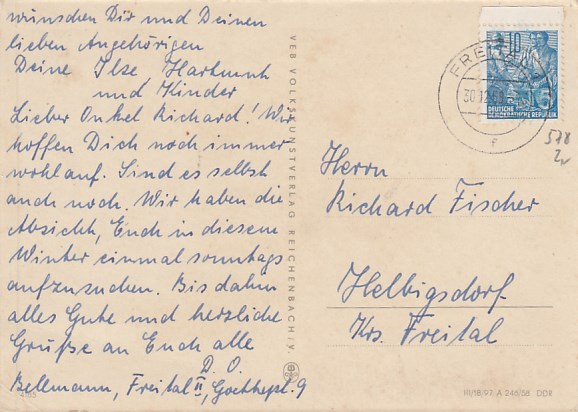 wünschen Dir und Deinen
lieben Angehörigen
Deine Ilse Hartmuth
und Kinder
Lieber Onkel Richard! Wir
hoffen Dich noch immer
wohlauf. Sind es selbst
auch noch. Wir haben die
Absicht, Euch in diesem
Winter einmal sonntags
aufzusuchen. Bis dahin
alles Gute und herzliche
Grüße an Euch alle
D. O.
Bellmann, Freital II, 9
VEB VOLKSKUNSTVERLAG REICHENBACH/V.
10
DEUTSCHE
DEMOKRATISCHE REPUBLIK
FREITAL
30.12.
f
578
Herrn
Richard Fischer
Helbigsdorf
Krs. Freital
III/18/97 A 246/58 DDR